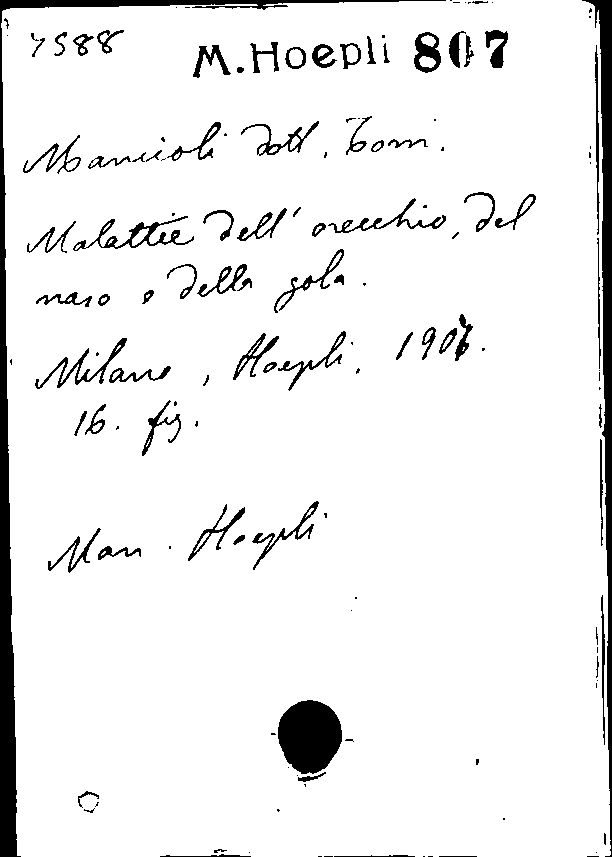 7588 M. Hoepli 807
Mancioli dott. Tom.
Malattie dell' orecchio, del
naso e della gola.
Milano, Hoepli, 1907.
16. fig.
Man. Hoepli